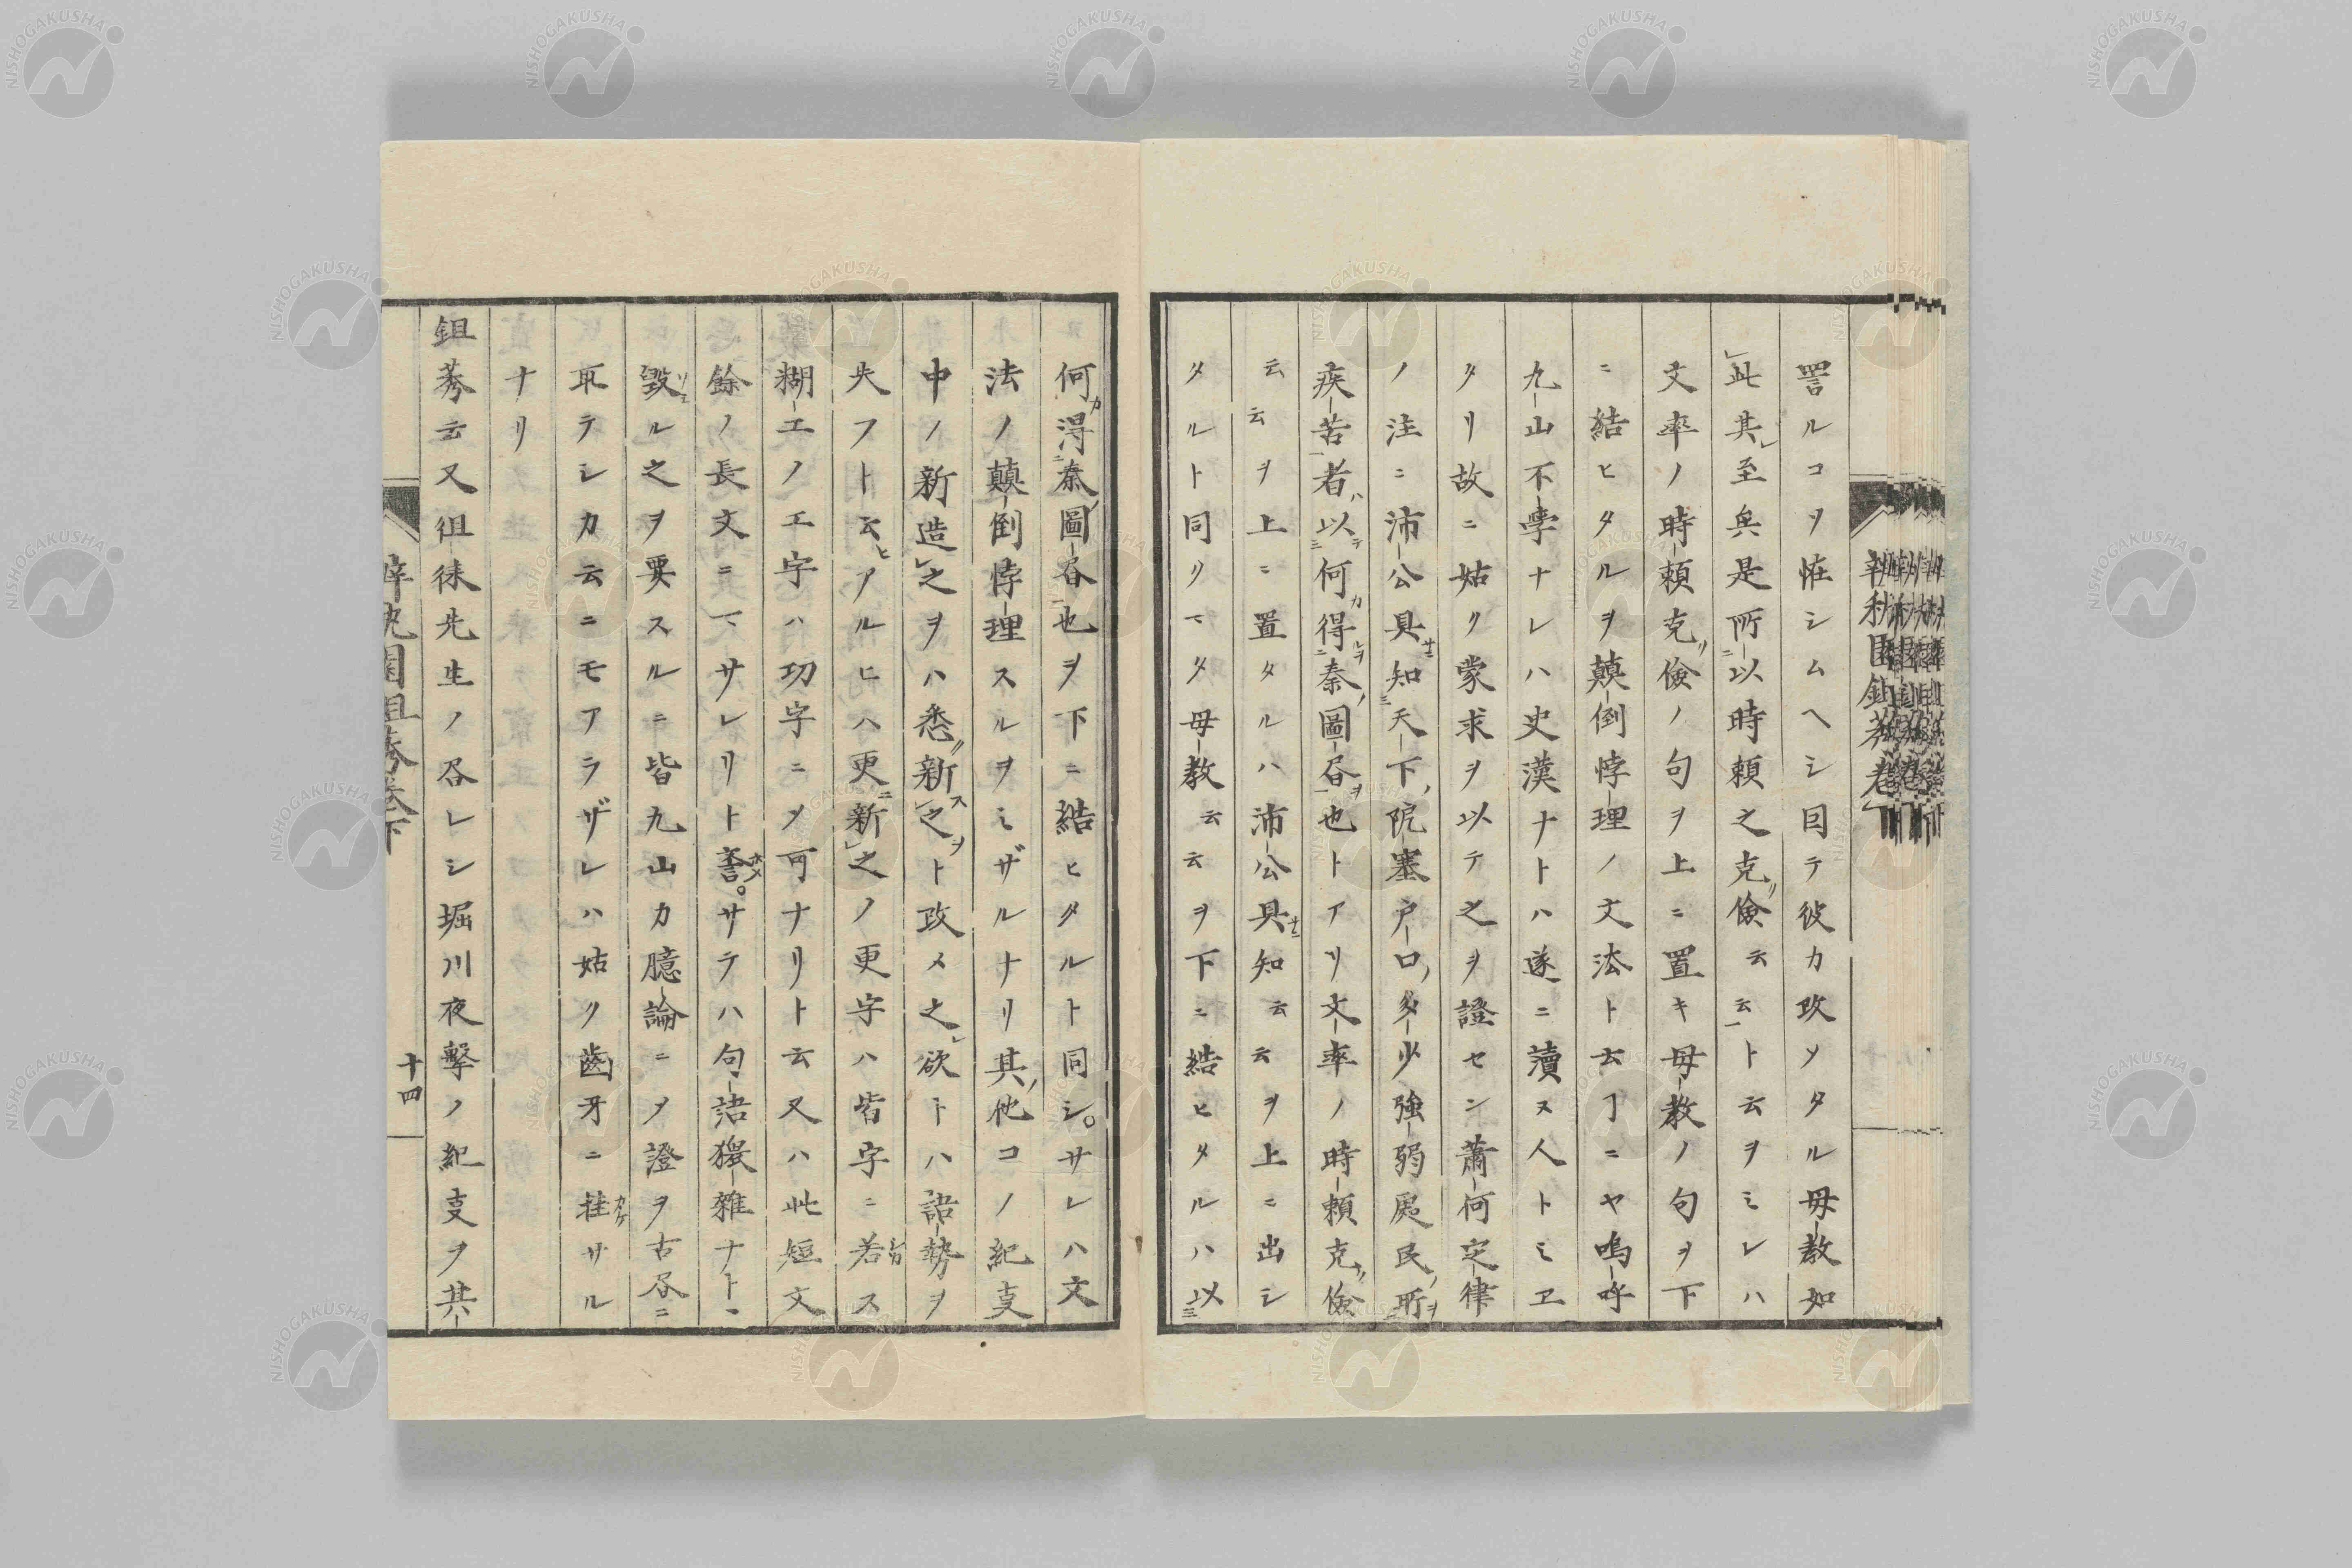 詈ルコヲ恠シムヘシ囙テ彼カ攻ソタル毋教如
此其至矣是所以時頼之克儉云云ト云ヲミレハ
文率ノ時頼克儉ノ句ヲ上ニ置キ毋教ノ句ヲ下
ニ結ヒタルヲ顛倒悖理ノ文法ト云ヿニヤ嗚呼
九山不學ナレハ史漢ナトハ遂ニ瀆ス人トミヱ
タリ故ニ姑ク蒙求ヲ以テ之ヲ證セン蕭何定律
ノ注ニ沛公具知天下阨塞户口多少強弱處民所
疾苦者以何得秦圖書也トアリ文率ノ時頼克儉
云云ヲ上ニ置タルハ沛公具知云云ヲ上ニ出シ
タルト同クマタ毋教云云ヲ下ニ結ヒタルハ以
何得秦圖書也ヲ下ニ結ヒタルト同シ。サレハ文
法ノ顛倒悖理スルヲミザルナリ其他コノ紀叓
中ノ新造之ヲハ悉新之ト改メ之欲トハ語勢ヲ
失フト云アルヒハ更新之ノ更字ハ皆字ニ若ス
糊エノエ字ハ功字ニメ可ナリト云又ハ此短文
餘ノ長文ニマサレリト諅。サテハ句語猥雜ナトヽ
毀ル之ヲ要スルニ皆九山カ臆論ニメ證ヲ古昼ニ
取テシカ云ニモアラザレハ姑ク齒牙ニ挂サル
ナリ
鉏莠云又徂徠先生ノ呑レシ堀川夜擊ノ紀叓ヲ其
十四